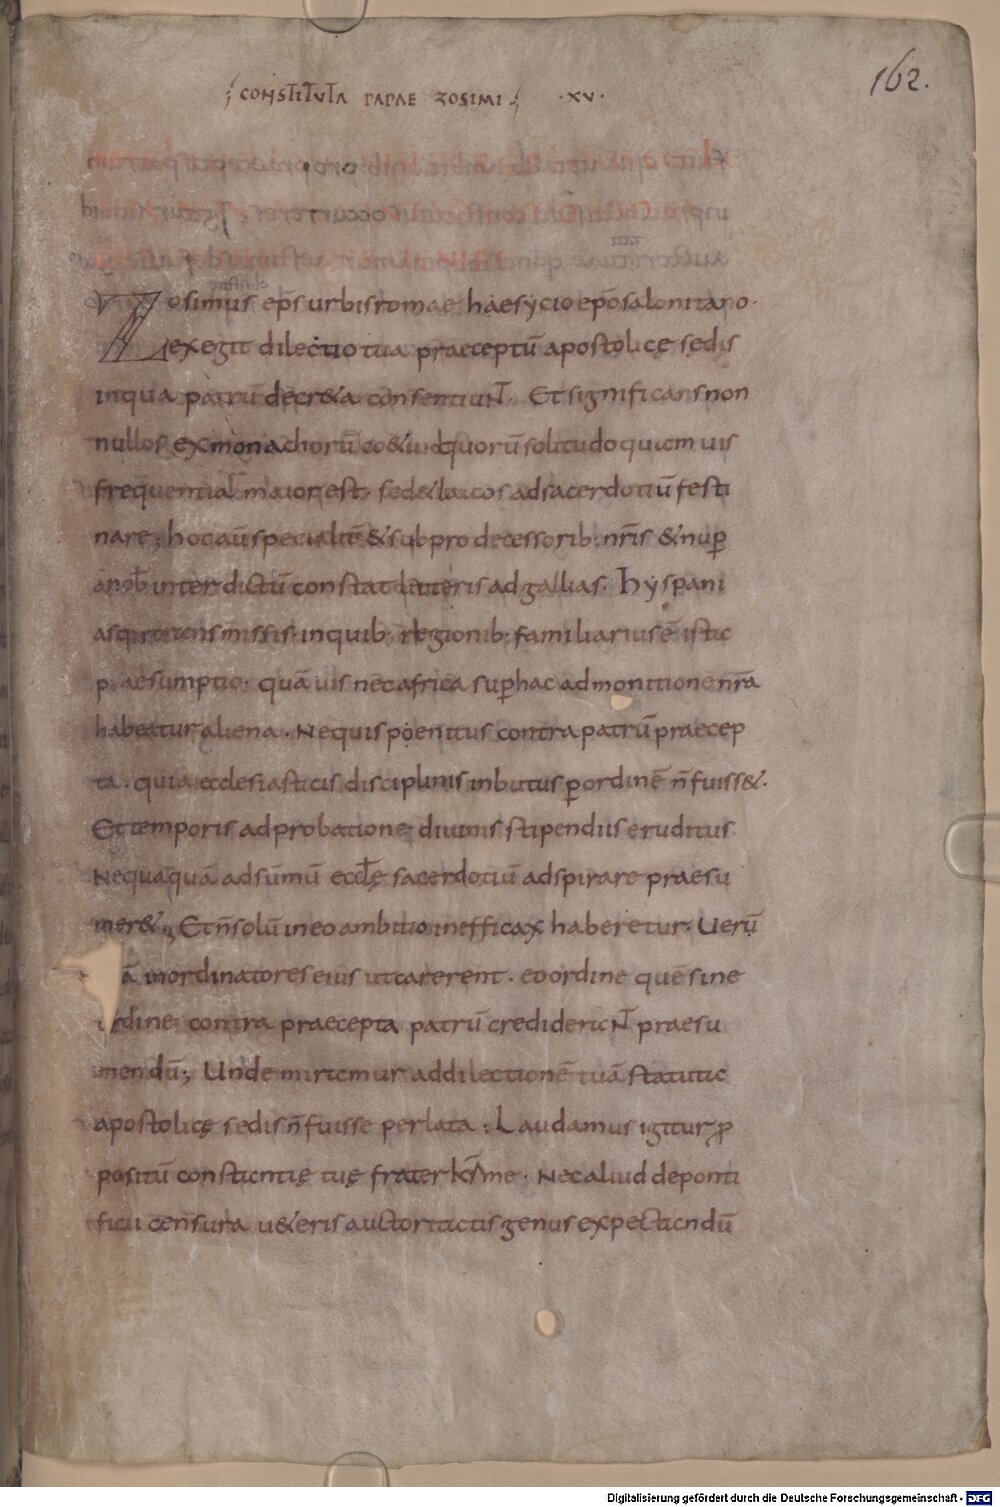 162.
CONSTITUTA PAPAE ZOSIMI · XV ·
Zosimus ep̄s urbis romae haesycio ep̄o salonitano·
exegit dilectio tua praeceptū apostolicę sędis
in qua patrū decr&a consentiuNT. Et significans non
nullos ex monachorū quorū solitudo quamuis
frequentia maior est, sed & laicos ad sacerdotiū festi
nare; hoc aūt specialit̄ & sub prodecessorib; nr̄is & nup̄
a nob̄ interdictū constat litteris ad gallias. hyspani
asq; missis· in quib; regionib; familiarius ē istac
praesumptio· quāuis nec africa sup̄ hac admonitione nr̄a
habeatur aliena. Ne quis poenitus contra patrū praecep
ta· quia ecclesiasticis disciplinis inbutus p̄ ordinē n̄ fuiss&.
Et temporis adprobatione diuinis stipendiis eruditus
Nequaquā ad sūmū eccl̄ę sacerdotiū adspirare praesu
mer&; Et n̄ solū in eo ambitio inefficax haberetur. Uerū
ā in ordinatores eius ut carerent· eo ordine quē sine
ordine contra praecepta patrū crediderūNT praesu
mendū; Unde miramur ad dilectionē tuā statuta
apostolicę sedis n̄ fuisse perlata; Laudamus igitur p̄
positū constantię tuę frater kr̄me· Nec aliud de ponti
ficii censura u&eris auctoritatis genus expectandū
Digitalisierung gefördert durch die Deutsche Forschungsgemeinschaft - DFG